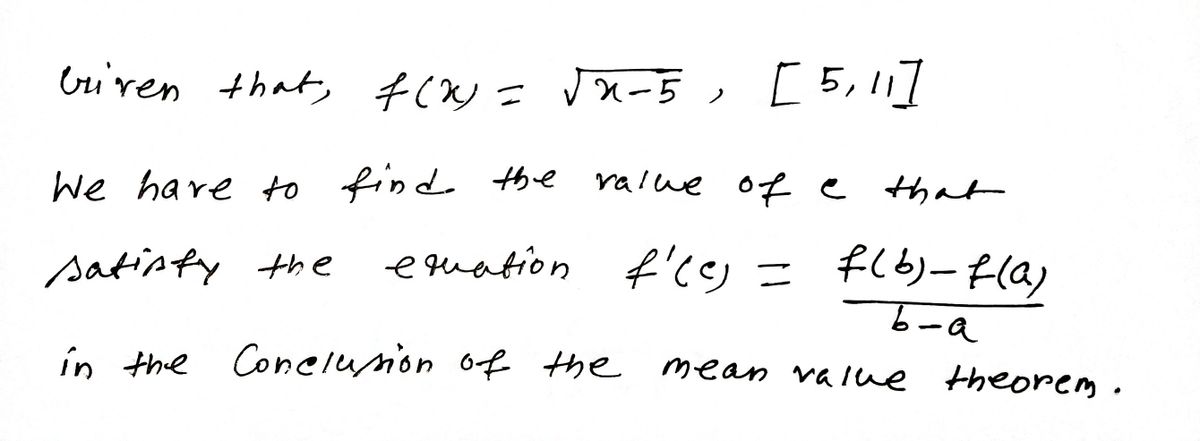 Given that, f(x) = √x-5 , [5,11]
We have to find the value of c that
satisfy the equation f'(c) = f(b)-f(a)
b-a
in the Conclusion of the mean value theorem.